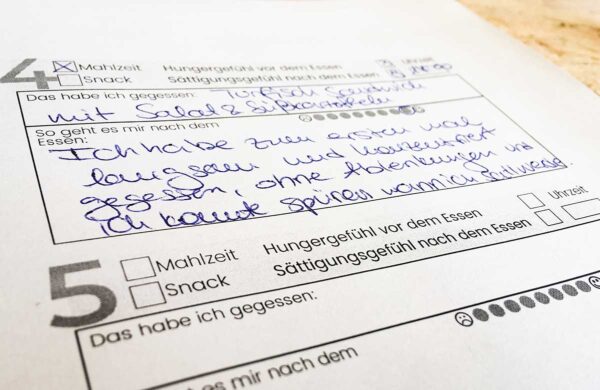 4 Mahlzeit Hungergefühl vor dem Essen Uhrzeit
Snack Sättigungsgefühl nach dem Essen
Das habe ich gegessen:
mit Salat & Süßkartoffeln
So geht es mir nach dem
Essen:
Ich habe zum ersten mal
langsam und konzentriert
gegessen, ohne Ablenkungen und
ich konnte spüren wann ich satt werde.
5 Mahlzeit Hungergefühl vor dem Essen Uhrzeit
Snack Sättigungsgefühl nach dem Essen
Das habe ich gegessen:
es mir nach dem